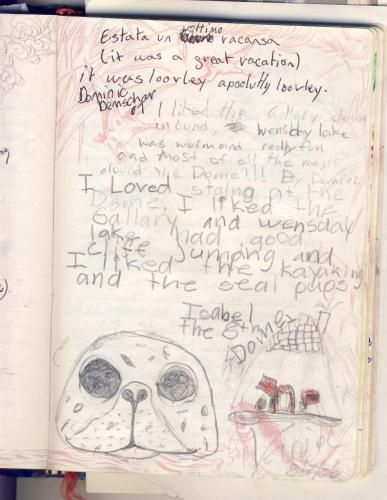 Estata un ottimo vacansa
(it was a great vacation)
it was loovley apsolutly loovley.
Dominic
I liked the Gallary down
in Lund, wensday lake
was warm and really fun
and most of all the magic
around the Dome!!! By
I Loved staing at the
Dome. I liked the
Gallary and wensday
lake had good
cliff jumping and
I liked the kayaking
and the seal pups
Isabel
the 8th
Dome